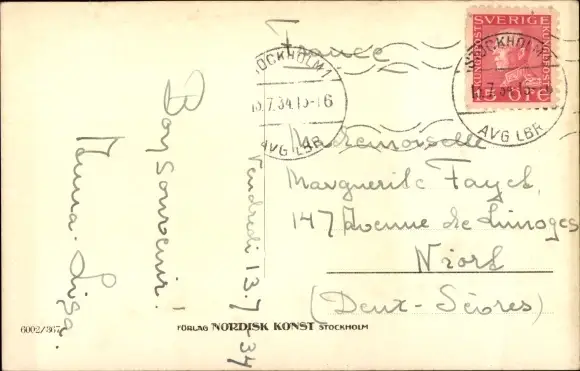 France
SVERIGE
15 ÖRE
STOCKHOLM 1
13.7.34.15-16
AVG LBR
STOCKHOLM 1
AVG LBR
Bon souvenir!
Vendredi 13.7-34
Mademoiselle
Marguerite
147 Avenue de Limoges
Niort
(Deux-Sèvres)
6002/367
FÖRLAG NORDISK KONST STOCKHOLM